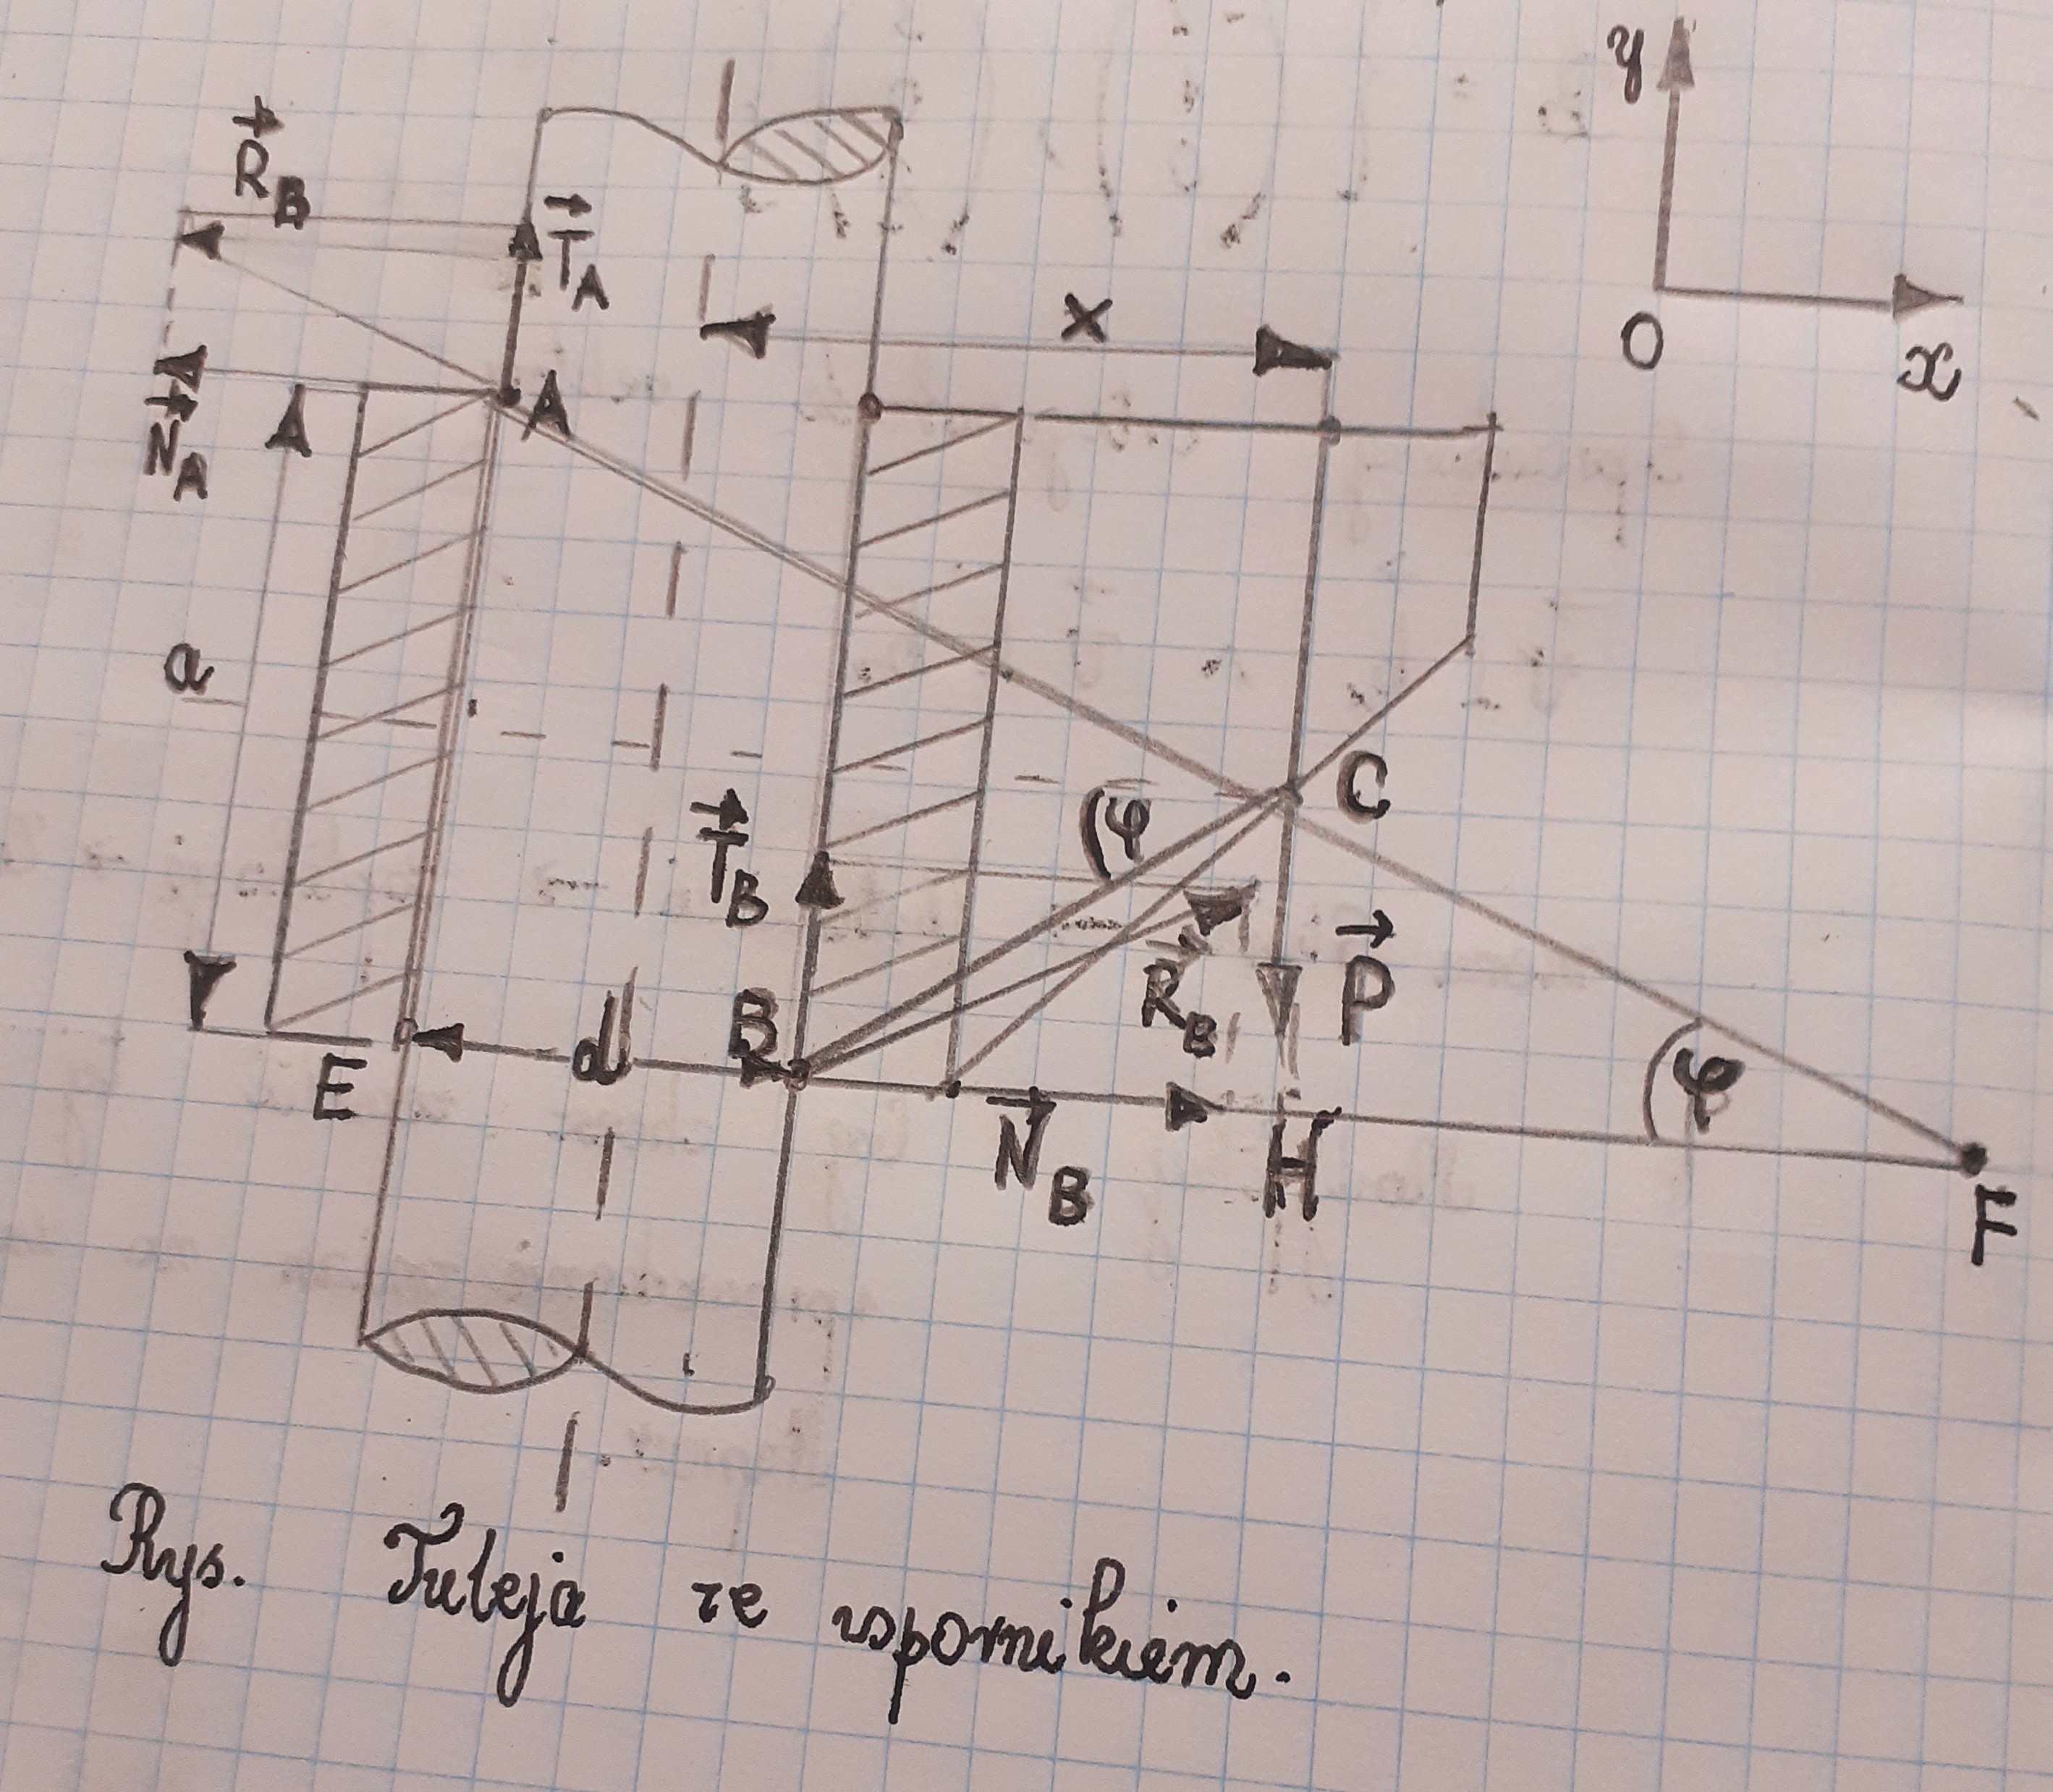 y
R⃗B
T⃗A
x
O
x
N⃗A
A
a
C
φ
T⃗B
R⃗B
P⃗
B
d
E
φ
N⃗B
H
F
Rys. Tuleja ze wspornikiem.